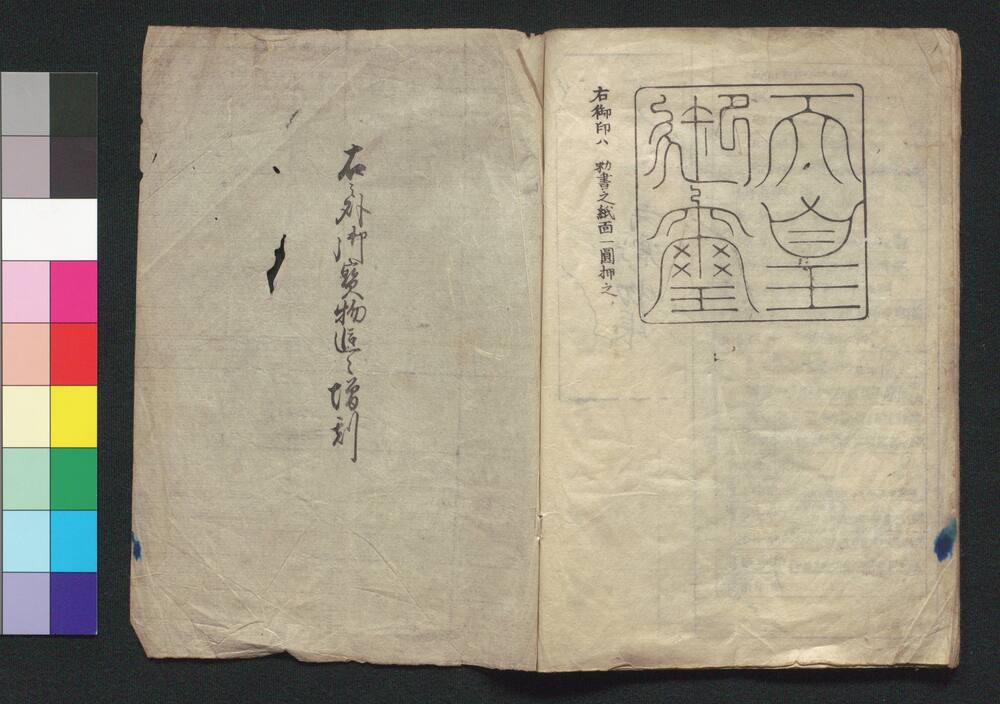 天皇
御璽
右御印ハ　勅書之紙面一圓押之
右之外御寳物追々増刻